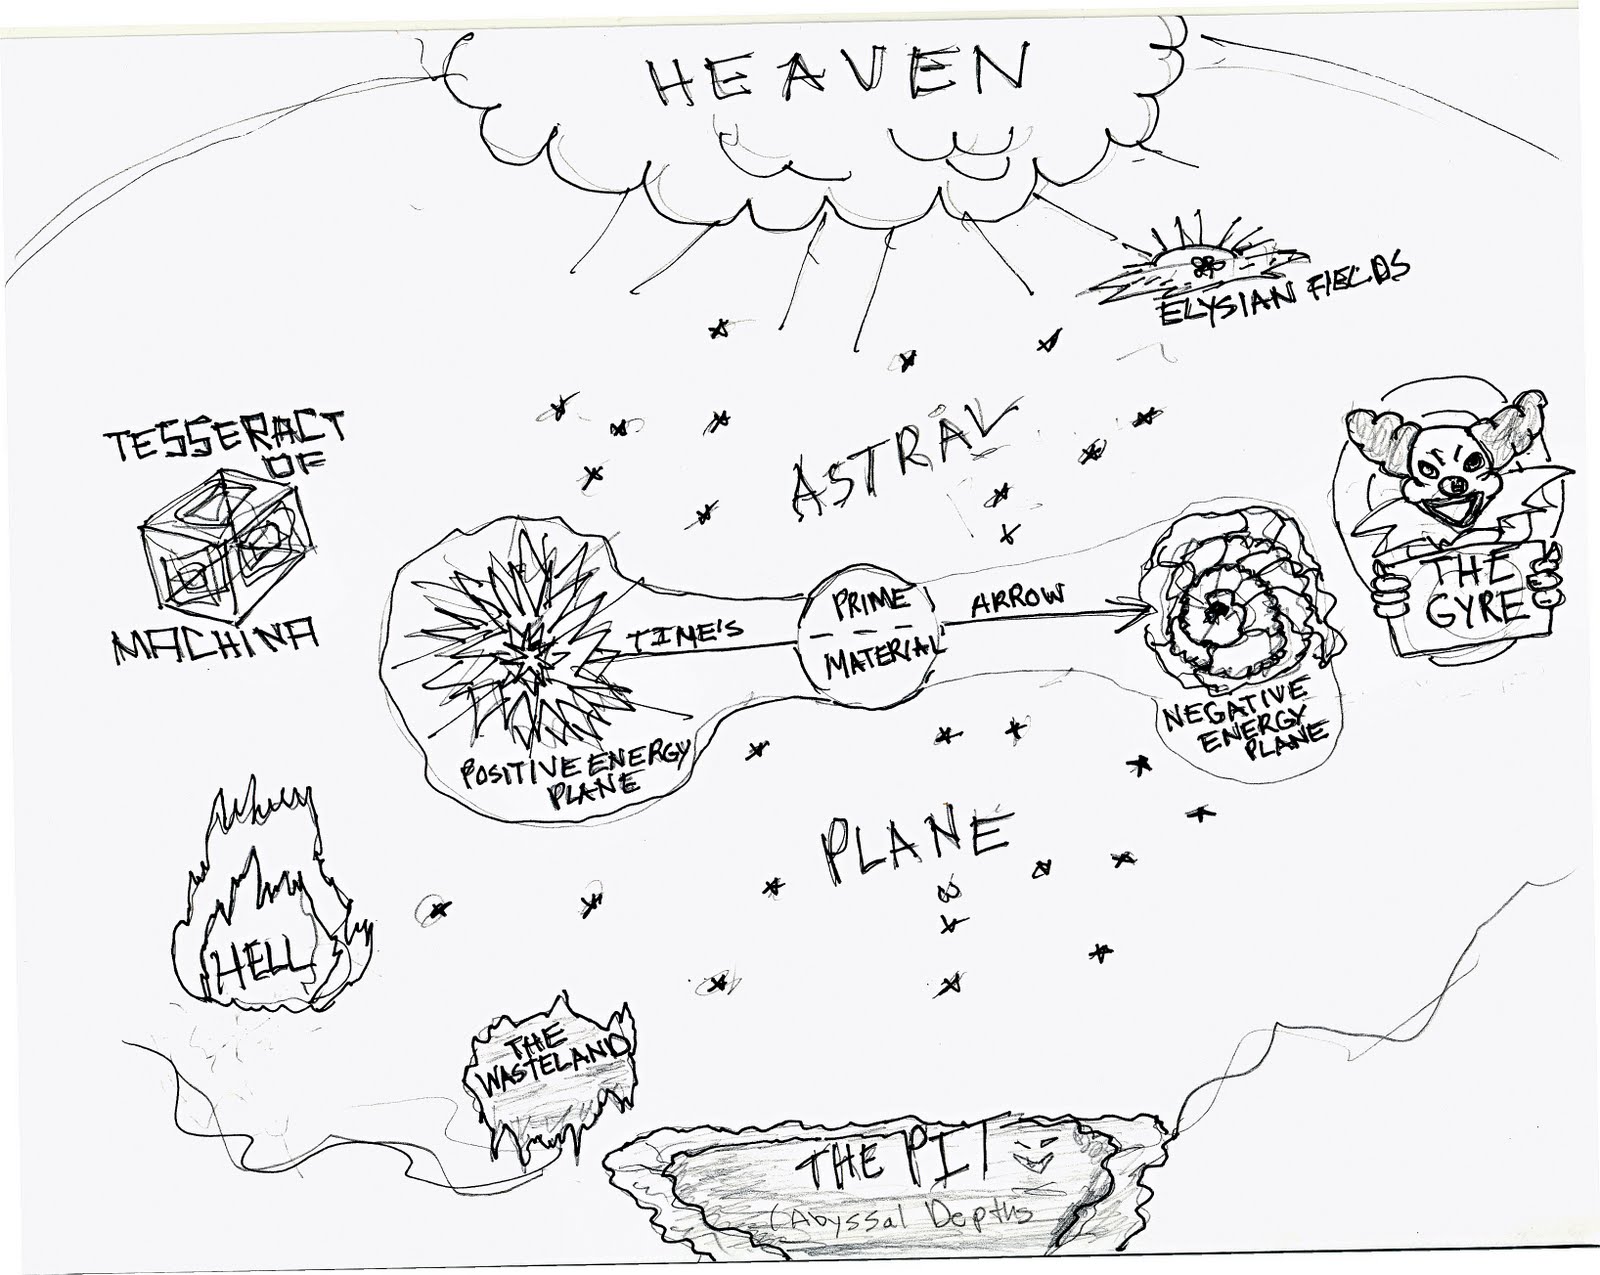 HEAVEN
ELYSIAN FIELDS
TESSERACT
OF
MACHINA
ASTRAL
THE
GYRE
PRIME
MATERIAL
TIME'S
ARROW
POSITIVE ENERGY
PLANE
NEGATIVE
ENERGY
PLANE
PLANE
HELL
THE
WASTELAND
THE PIT
(Abyssal Depths